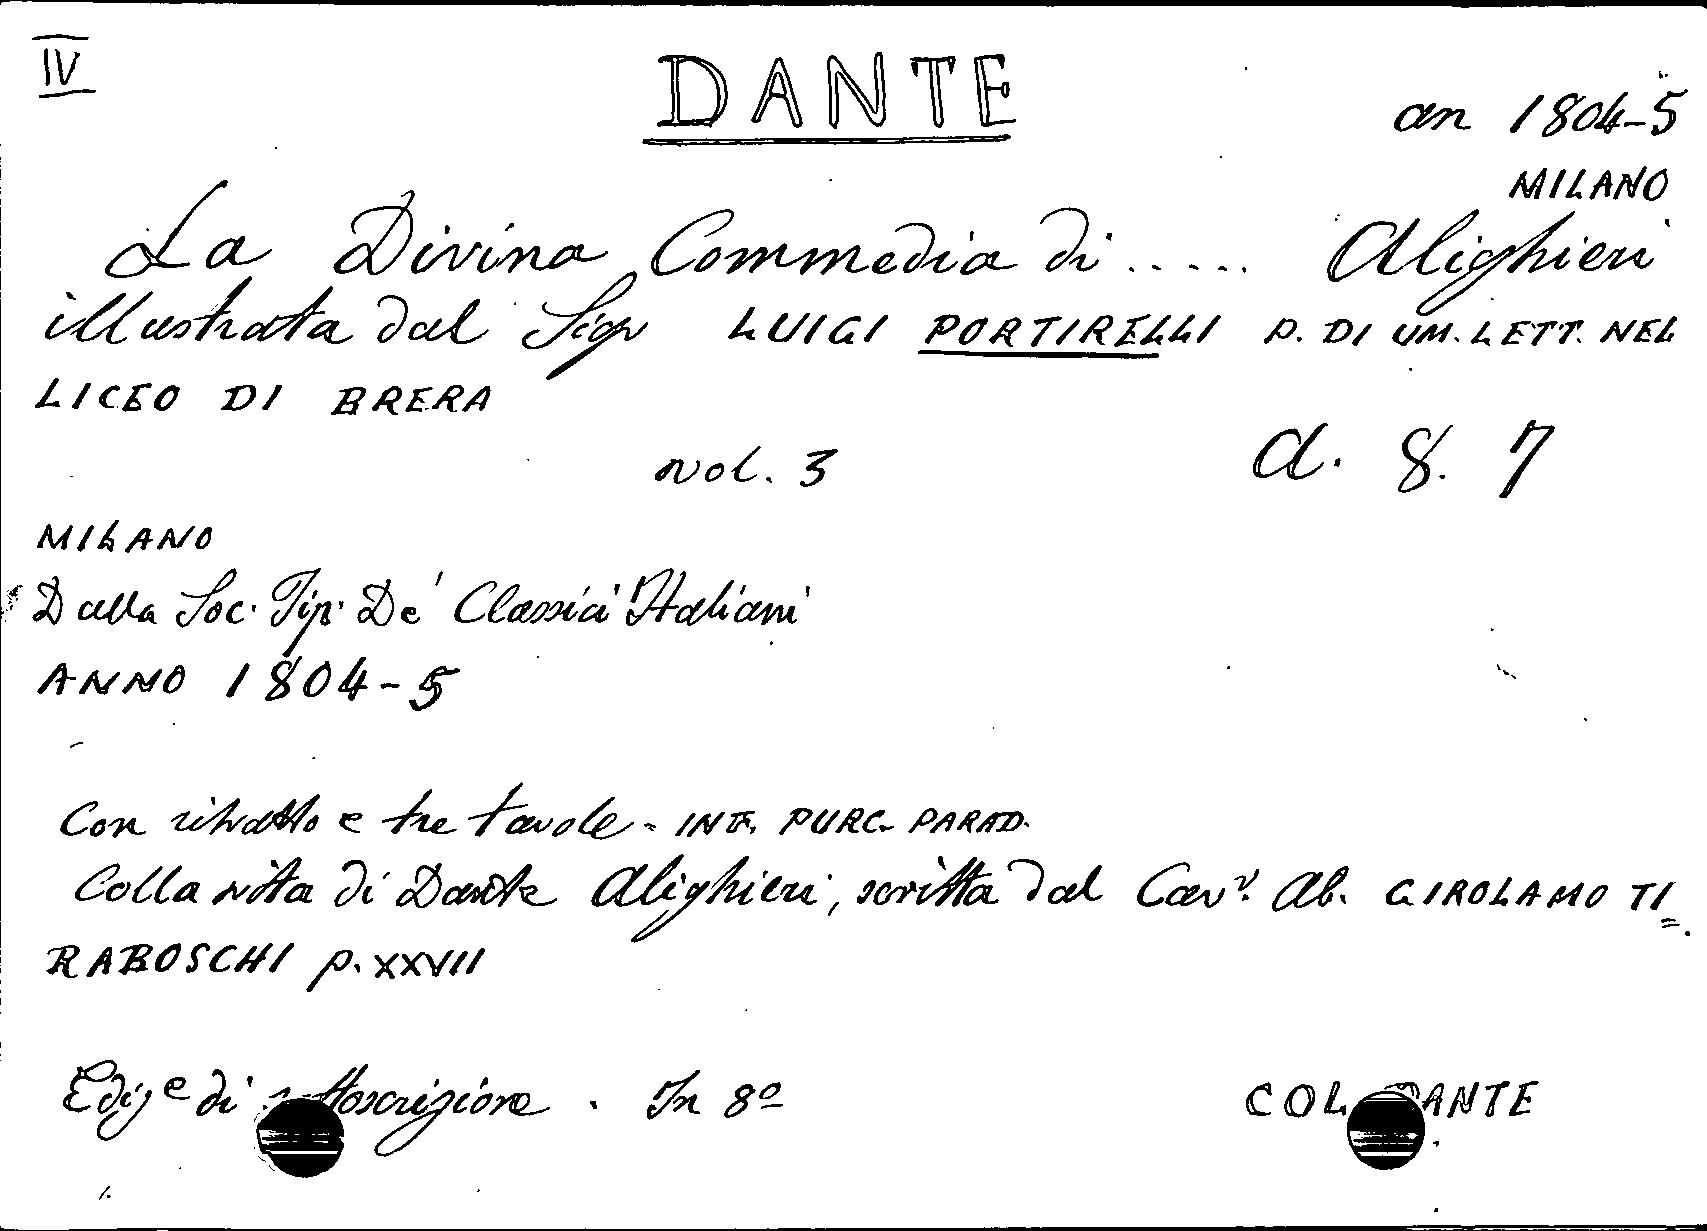 IV
DANTE
an 1804-5
MILANO
La Divina Commedia di ..... Alighieri
illustrata dal Sigr LUIGI PORTIRELLI P. DI UM. LETT. NEL
LICEO DI BRERA
vol. 3
a. 8. 7
MILANO
Dalla Soc. Tip. De' Classici Italiani
ANNO 1804-5
Con ritratto e tre tavole - INF. PURG. PARAD.
Colla vita di Dante Alighieri, scritta dal Cavr. Ab. GIROLAMO TI=
RABOSCHI p. XXVII
Edize di sottoscrizione. In 8º
COL. DANTE